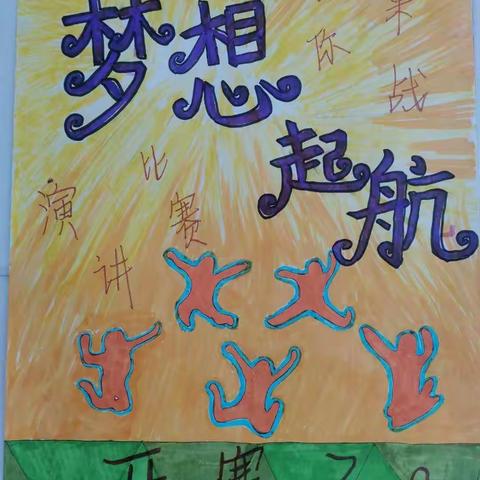 梦想
起航
你
来战
演讲
比赛
开